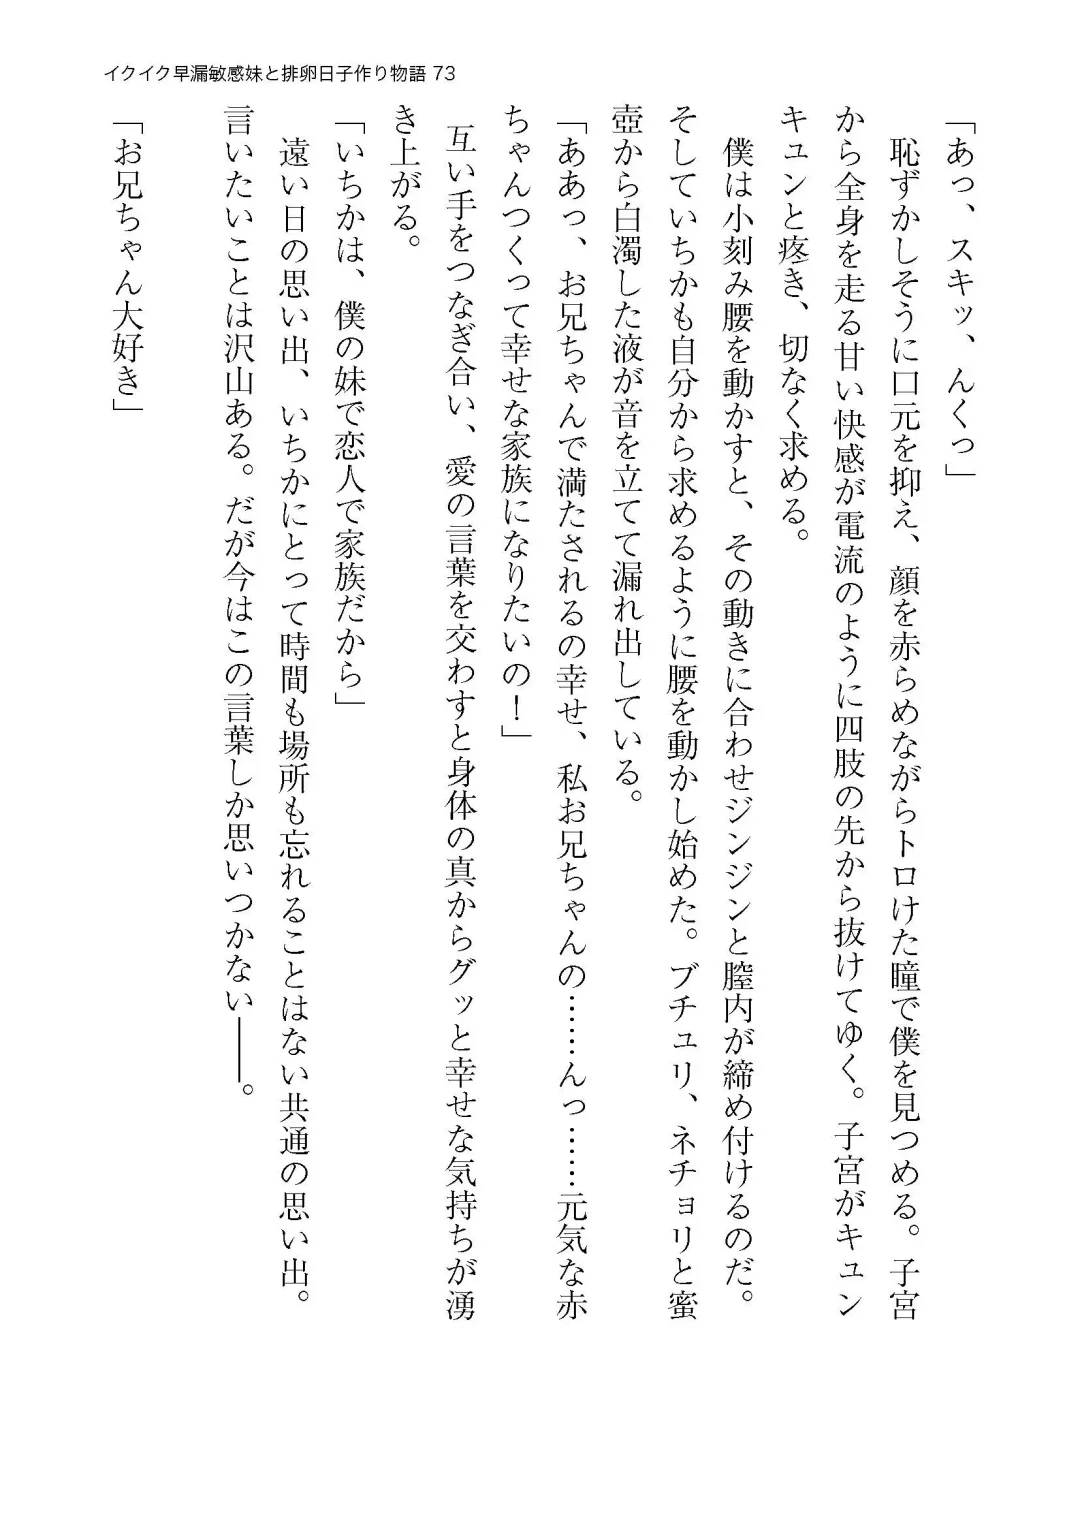 イクイク早漏敏感妹と排卵日子作り物語 73
「あっ、スキッ、んくっ」
恥ずかしそうに口元を抑え、顔を赤らめながらトロけた瞳で僕を見つめる。子宮
から全身を走る甘い快感が電流のように四肢の先から抜けてゆく。子宮がキュン
キュンと疼き、切なく求める。
僕は小刻み腰を動かすと、その動きに合わせジンジンと膣内が締め付けるのだ。
そしていちかも自分から求めるように腰を動かし始めた。ブチュリ、ネチョリと蜜
壺から白濁した液が音を立てて漏れ出している。
「ああっ、お兄ちゃんで満たされるの幸せ、私お兄ちゃんの……んっ……元気な赤
ちゃんつくって幸せな家族になりたいの！」
互い手をつなぎ合い、愛の言葉を交わすと身体の真からグッと幸せな気持ちが湧
き上がる。
「いちかは、僕の妹で恋人で家族だから」
遠い日の思い出、いちかにとって時間も場所も忘れることはない共通の思い出。
言いたいことは沢山ある。だが今はこの言葉しか思いつかない――。
「お兄ちゃん大好き」